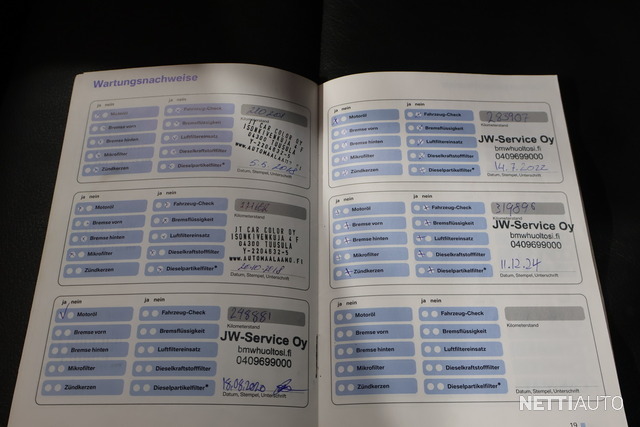 Wartungsnachweise
ja nein ja nein
Motoröl Fahrzeug-Check
Bremse vorn Bremsflüssigkeit
Bremse hinten Luftfiltereinsatz
Mikrofilter Dieselkraftstofffilter
Zündkerzen Dieselpartikelfilter*
Kilometerstand
JT CAR COLOR OY
ISONKIVENKUJA 4 F
04300 TUUSULA
WWW.AUTOMAALAAMO.FI
Datum, Stempel, Unterschrift
ja nein ja nein
Motoröl Fahrzeug-Check
Bremse vorn Bremsflüssigkeit
Bremse hinten Luftfiltereinsatz
Mikrofilter Dieselkraftstofffilter
Zündkerzen Dieselpartikelfilter*
Kilometerstand
JT CAR COLOR OY
ISONKIVENKUJA 4 F
04300 TUUSULA
WWW.AUTOMAALAAMO.FI
Datum, Stempel, Unterschrift
ja nein ja nein
Motoröl Fahrzeug-Check
Bremse vorn Bremsflüssigkeit
Bremse hinten Luftfiltereinsatz
Mikrofilter Dieselkraftstofffilter
Zündkerzen Dieselpartikelfilter*
298881
Kilometerstand
JW-Service Oy
bmwhuoltosi.fi
0409699000
18.08.2020
Datum, Stempel, Unterschrift
ja nein ja nein
Motoröl Fahrzeug-Check
Bremse vorn Bremsflüssigkeit
Bremse hinten Luftfiltereinsatz
Mikrofilter Dieselkraftstofffilter
Zündkerzen Dieselpartikelfilter*
Kilometerstand
JW-Service Oy
bmwhuoltosi.fi
0409699000
14.7.2022
Datum, Stempel, Unterschrift
ja nein ja nein
Motoröl Fahrzeug-Check
Bremse vorn Bremsflüssigkeit
Bremse hinten Luftfiltereinsatz
Mikrofilter Dieselkraftstofffilter
Zündkerzen Dieselpartikelfilter*
319898
Kilometerstand
JW-Service Oy
bmwhuoltosi.fi
0409699000
11.12.24
Datum, Stempel, Unterschrift
ja nein ja nein
Motoröl Fahrzeug-Check
Bremse vorn Bremsflüssigkeit
Bremse hinten Luftfiltereinsatz
Mikrofilter Dieselkraftstofffilter
Zündkerzen Dieselpartikelfilter*
Kilometerstand
Datum, Stempel, Unterschrift
19
NETTIAUTO